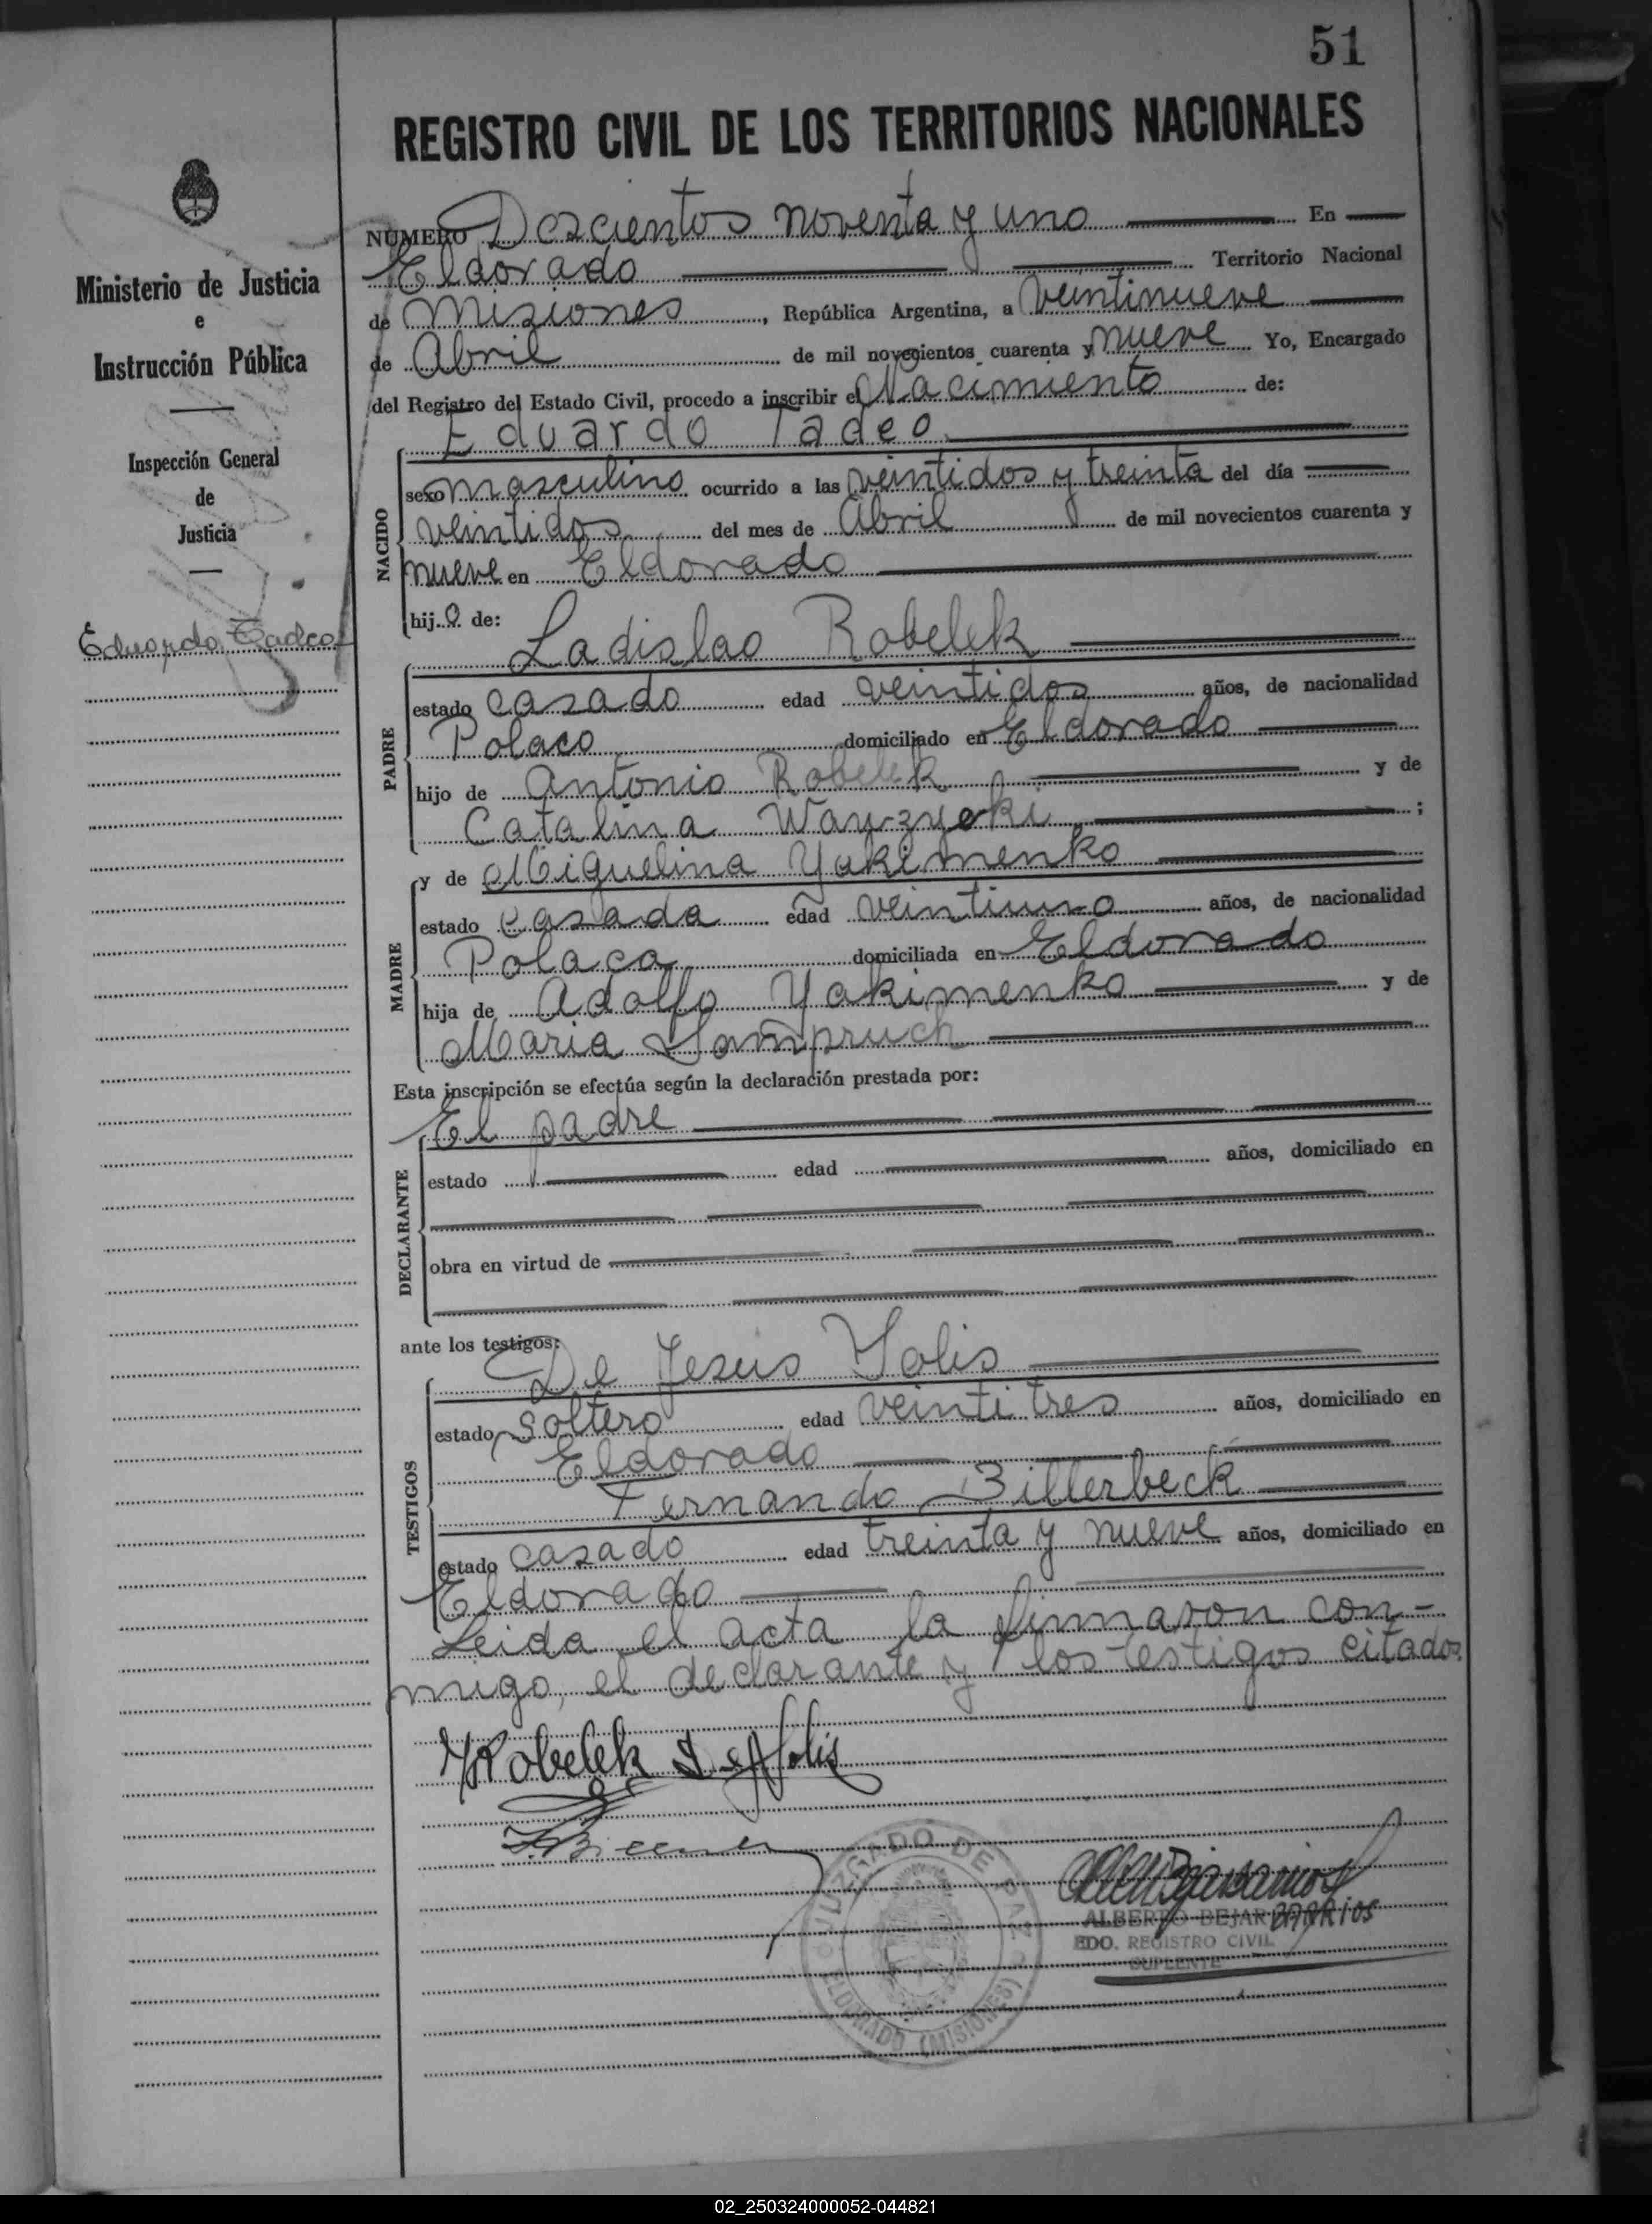 51
REGISTRO CIVIL DE LOS TERRITORIOS NACIONALES
Ministerio de Justicia
e
Instrucción Pública
Inspección General
de
Justicia
Eduardo Tadeo
NUMERO Doscientos noventa y uno En
Eldorado Territorio Nacional
de Misiones, República Argentina, a veintinueve
de Abril de mil novecientos cuarenta y nueve Yo, Encargado
del Registro del Estado Civil, procedo a inscribir el Nacimiento de:
Eduardo Tadeo
NACIDO
sexo masculino ocurrido a las veintidos y treinta del día
veintidos del mes de Abril de mil novecientos cuarenta y
nueve en Eldorado
hijo de:
Ladislao Robelek
PADRE
estado casado edad veintidos años, de nacionalidad
Polaco domiciliado en Eldorado
hijo de Antonio Robelek y de
Catalina ;
y de Miguelina Yakimenko
MADRE
estado casada edad veintiuno años, de nacionalidad
Polaca domiciliada en Eldorado
hija de Adolfo Yakimenko y de
Maria
Esta inscripción se efectúa según la declaración prestada por:
El padre
DECLARANTE
estado edad años, domiciliado en
obra en virtud de
ante los testigos:
De Jesus Solis
TESTIGOS
estado soltero edad veintitres años, domiciliado en
Eldorado
Fernando Billerbeck
estado casado edad treinta y nueve años, domiciliado en
Eldorado
Leida el acta la firmaron con-
migo, el declarante y los testigos citados.
Robelek
JUZGADO DE PAZ
ELDORADO (MISIONES)
ALBERTO BEJAR BARRIOS
EDO. REGISTRO CIVIL
SUPLENTE
02_250324000052-044821